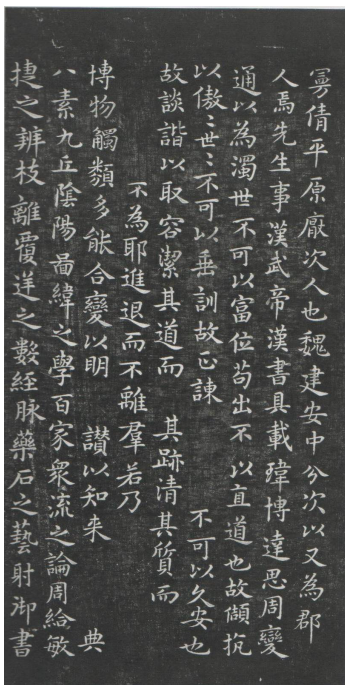 曼倩平原厭次人也魏建安中分次以又為郡
人焉先生事漢武帝漢書具載瑋博達思周變
通以為濁世不可以富位苟出不以直道也故傾抗
以傲〻世〻不可以垂訓故正諫　不可以久安也
故談諧以取容潔其道而　其跡清其質而
不為耶進退而不離羣若乃
博物觸類多能合變以明　讃以知来　典
八素九丘陰陽啚緯之學百家衆流之論周給敏
捷之辨枝離覆逆之數經脉藥石之藝射御書